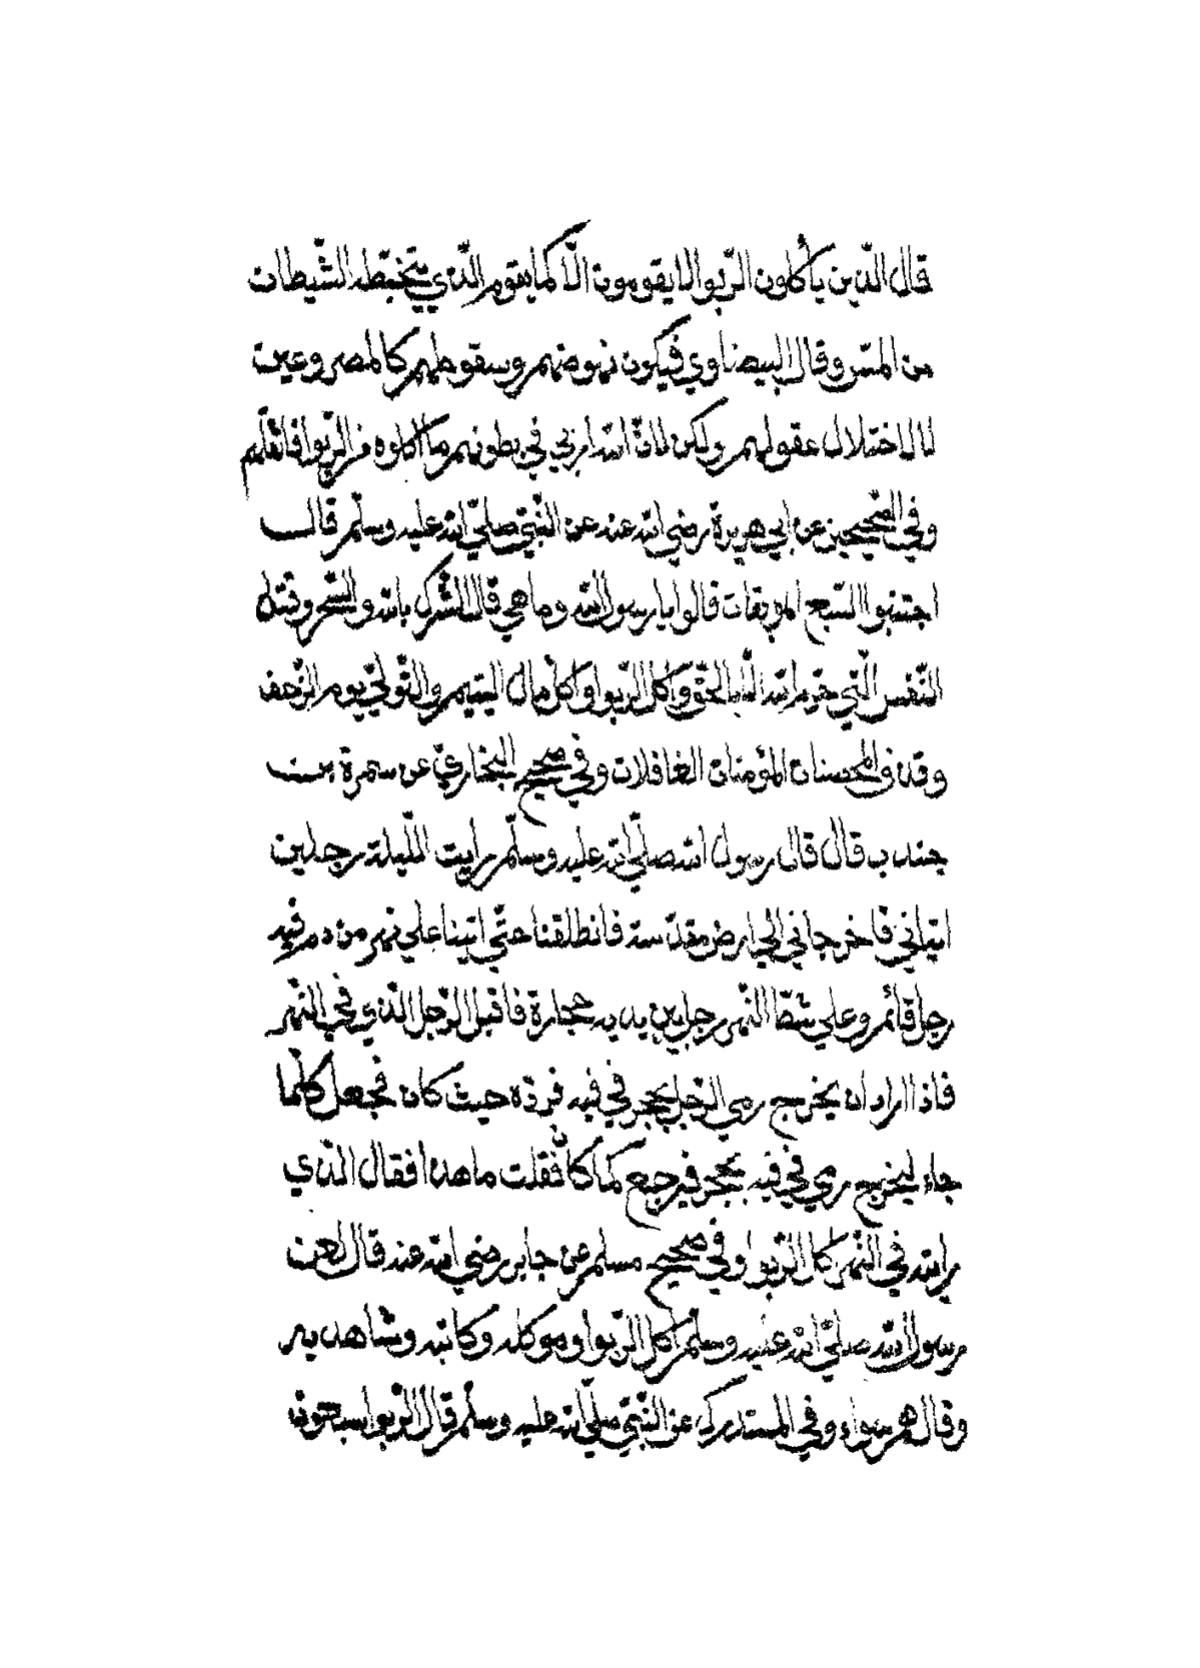 قال الّذين يأكلون الرّبوا لا يقومون الّا كما يقوم الّذي يتخبّطه الشّيطان
من المسّ وقال البيضاوي فيكون نهوضهم وسقوطهم كالمصروعين
لا لاختلال عقولهم ولكن لانّ الله اربى في بطونهم ما اكلوه من الرّبوا فاثقلهم
وفي الصّحيحين عن ابي هريرة رضي الله عنه عن النّبيّ صلّي الله عليه وسلّم قال
اجتنبوا السّبع الموبقات قالوا يا رسول الله وما هي قال الشّرك بالله والسّحر وقتل
النّفس الّتي حرّم الله الّا بالحقّ واكل الرّبوا واكل مال اليتيم والتّولّي يوم الزّحف
وقذف المحصنات المؤمنات الغافلات وفي صحيح البخاري عن سمرة بن
جندب قال قال رسول الله صلّي الله عليه وسلّم رايت اللّيلة رجلين
اتياني فاخرجاني الي ارض مقدّسة فانطلقنا حتّي اتينا علي نهر من دم فيه
رجل قائم وعلي شطّ النّهر رجل بين يديه حجارة فاقبل الرّجل الّذي في النّهر
فاذا اراد ان يخرج رمي الرّجل بحجر في فيه فردّه حيث كان فجعل كلّما
جاء ليخرج رمي في فيه بحجر فيرجع كما كان فقلت ما هذا فقال الّذي
رايته في النّهر اكل الرّبوا وفي صحيح مسلم عن جابر رضي الله عنه قال لعن
رسول الله صلّي الله عليه وسلّم اكل الرّبوا وموكله وكاتبه وشاهديه
وقال هم سواء وفي المستدرك عن النّبيّ صلّي الله عليه وسلّم قال الرّبوا سبعون